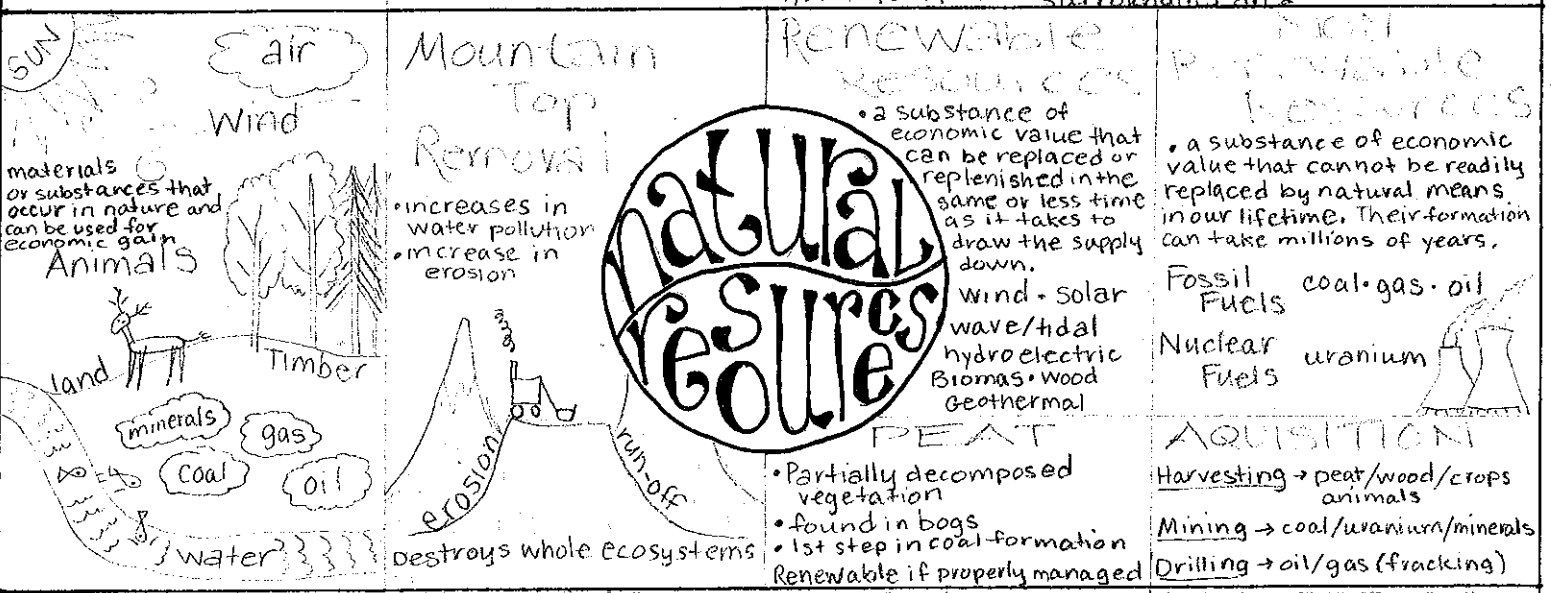 surrounding area
SUN
air
Wind
materials
or substances that
occur in nature and
can be used for
economic gain
Animals
land
Timber
minerals
gas
coal
oil
water
Mountain
Top
Removal
•increases in
water pollution
•increase in
erosion
erosion
run-off
Destroys whole ecosystems
natural
resources
Renewable
Resources
•a substance of
economic value that
can be replaced or
replenished in the
same or less time
as it takes to
draw the supply
down.
Wind • Solar
wave/tidal
hydroelectric
Biomas • wood
Geothermal
PEAT
•Partially decomposed
vegetation
•found in bogs
•1st step in coal formation
Renewable if properly managed
Non
Renewable
Resources
• a substance of economic
value that cannot be readily
replaced by natural means
in our lifetime. Their formation
can take millions of years.
Fossil
Fuels
coal•gas•oil
Nuclear
Fuels
uranium
AQUISITION
Harvesting → peat/wood/crops
animals
Mining → coal/uranium/minerals
Drilling → oil/gas (fracking)